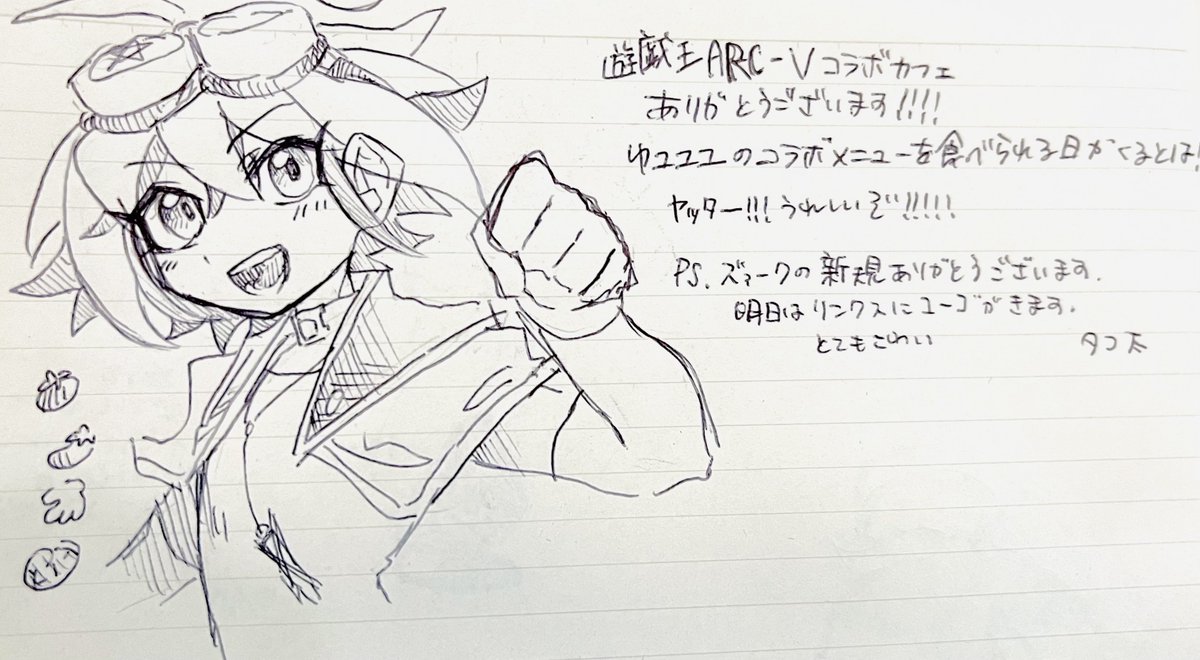 遊戯王ARC-Vコラボカフェ
ありがとうございます!!!!
ゆユユユのコラボメニューを食べられる日がくるとは!
ヤッター!!!うれしいぞ!!!!!
PS.ズァークの新規ありがとうございます.
明日はリンクスにユーゴがきます.
とてもこわい
タコ天